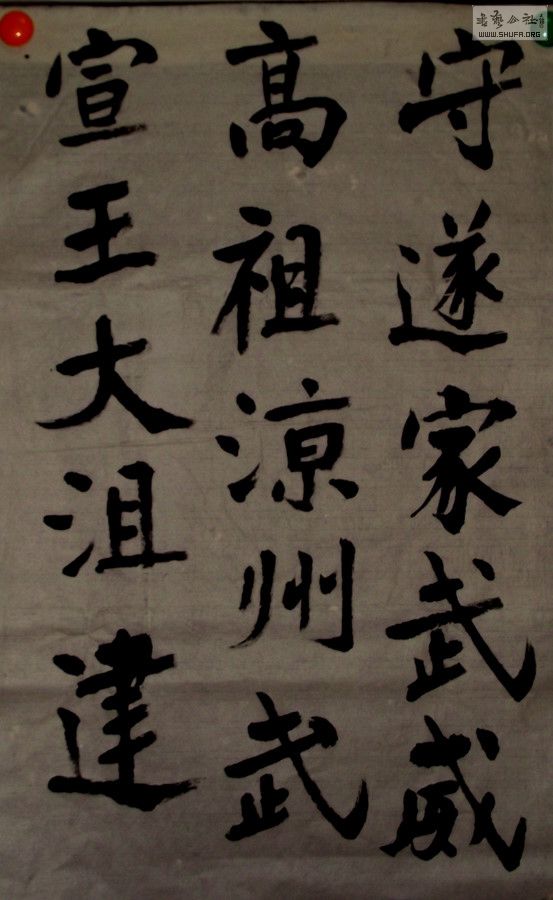 守遂家武威
高祖凉州武
宣王大沮建
书艺公社
WWW.SHUFA.ORG